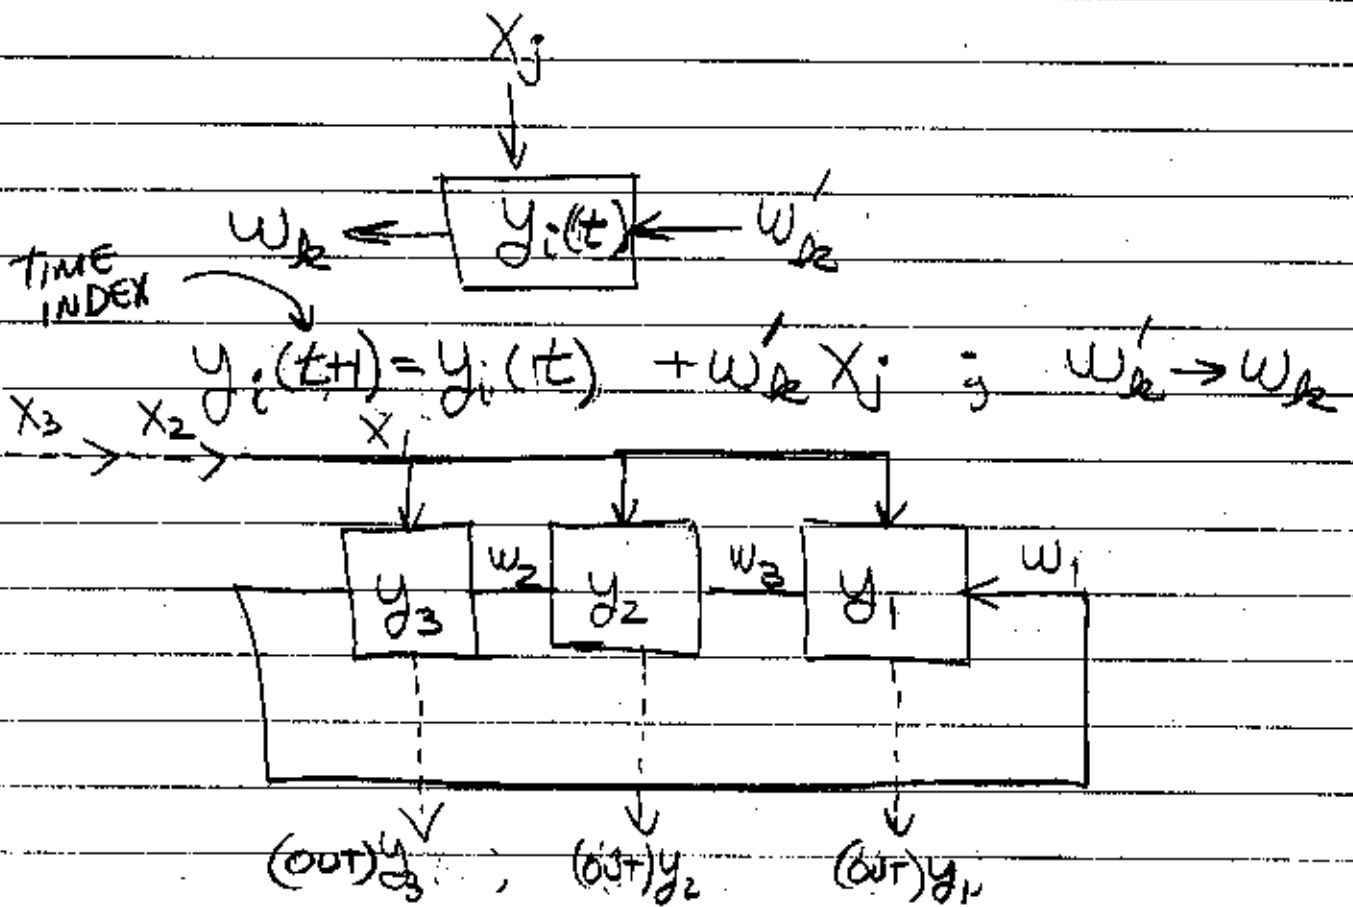 Xj
Wk ← yi(t) ← W'k
TIME
INDEX
yi(t+1) = yi(t) + W'k Xj ; W'k → Wk
X3 X2 X1
y3 W2 y2 W3 y1 W1
(OUT)y3 , (OUT)y2 (OUT)y1